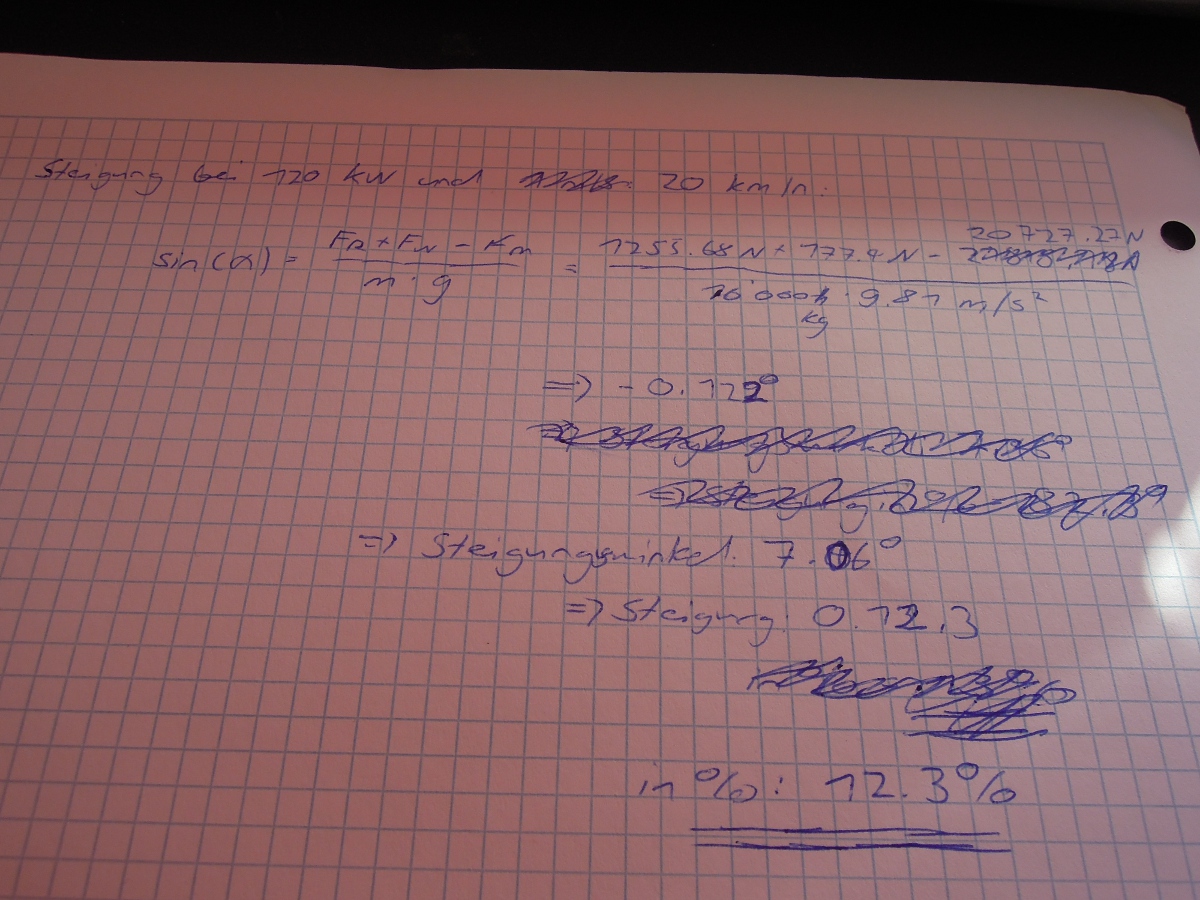 Steigung bei 120 kW und 20 km/h:
20727.27N
sin(α) = F_R + F_W - K_m / m · g = 1255.68 N + 177.4 N - / 16'000 kg · 9.81 m/s²
=> - 0.122°
=> Steigungswinkel: 7.06°
=> Steigung: 0.12.3
in %: 12.3%